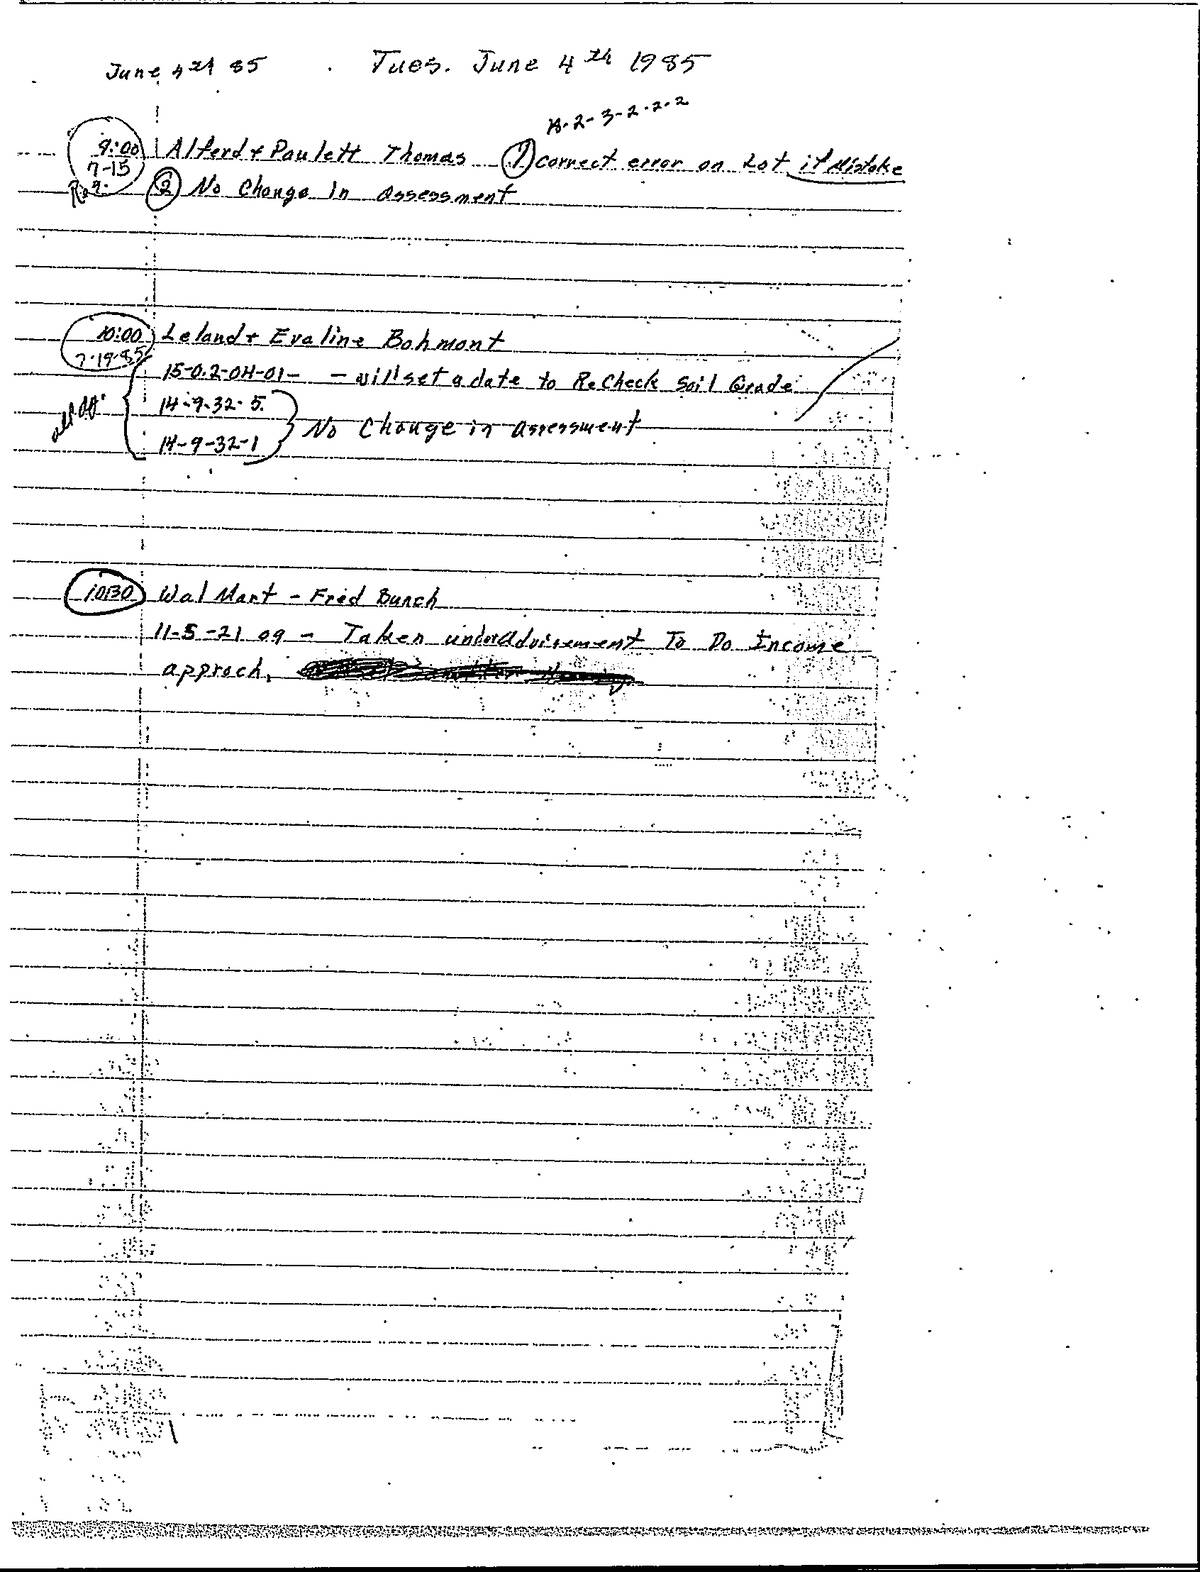 June 4th 85 . Tues. June 4th 1985
18-2-3-2-2-2
9:00 Alferd + Paulett Thomas (1) correct error on Lot if Mistake
7-15
(2) No Change In Assessment
10:00 Leland + Evaline Bohmont
7-19-85
15-0.2-04-01- - will set a date to ReCheck Soil Grade
14-9-32-5.
No Change in assessment
14-9-32-1
10:30 Wal Mart - Fred Bunch
11-5-21 09 - Taken under Advisement To Do Income
approch,